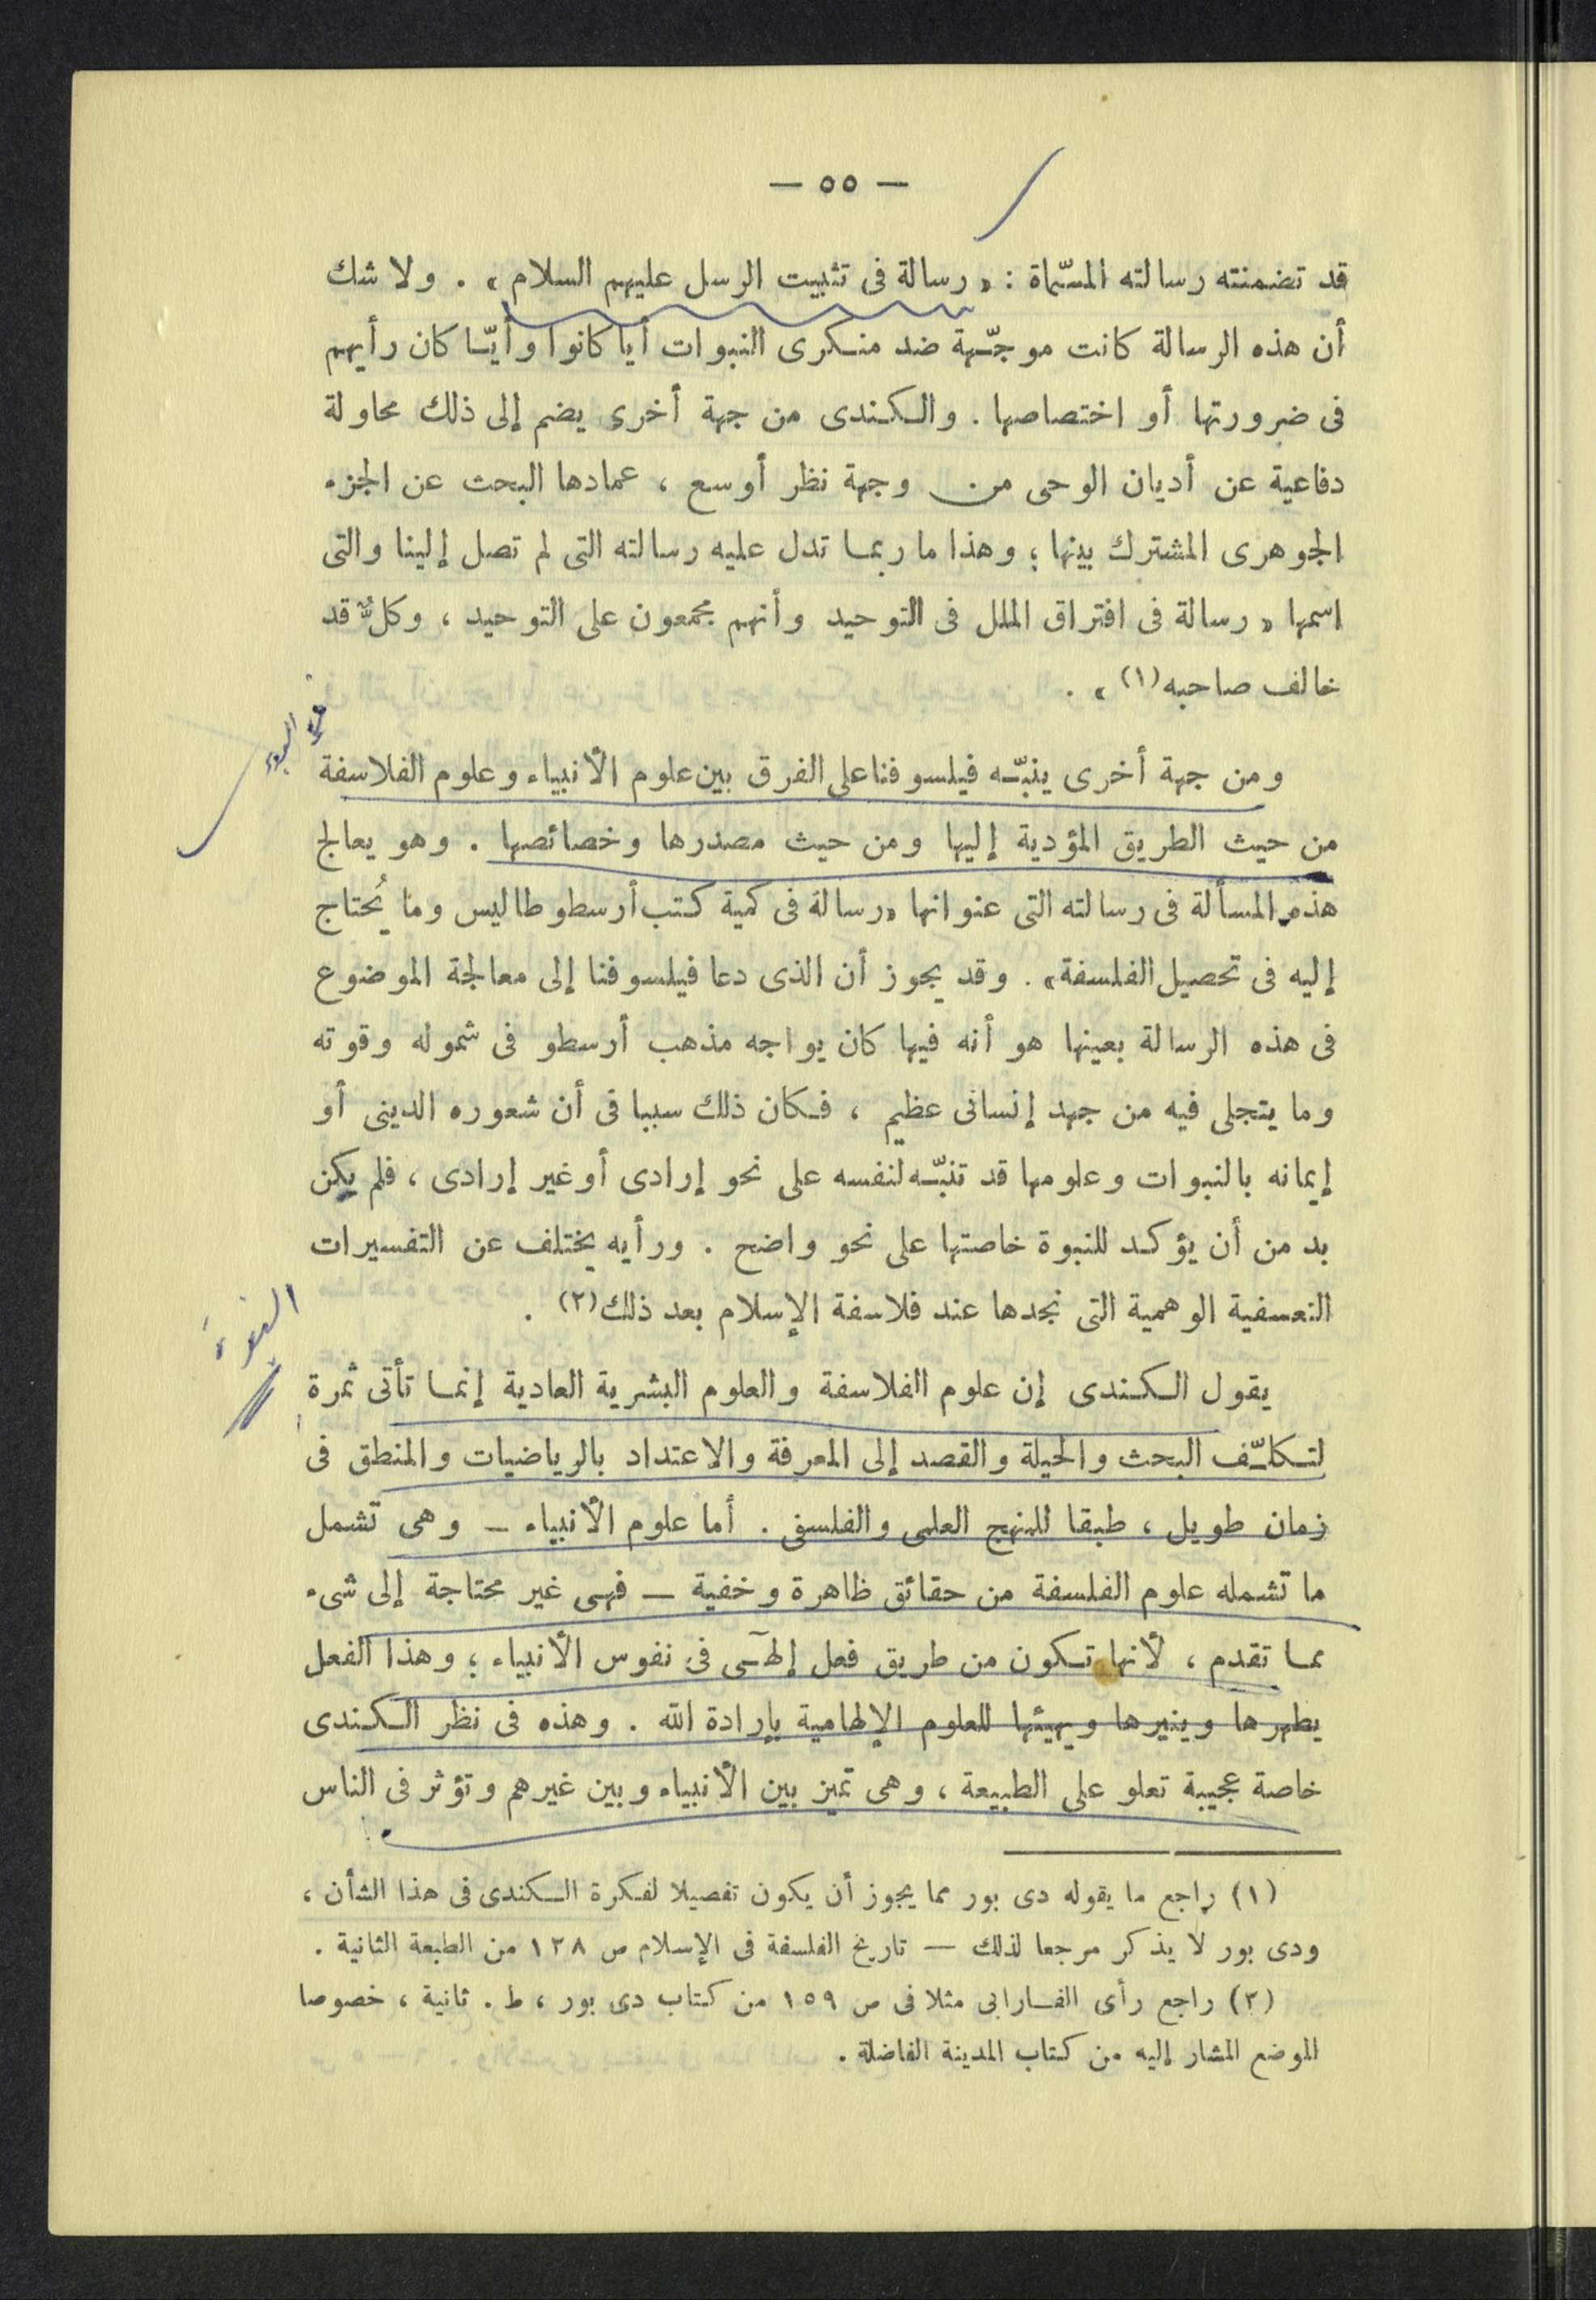 — ٥٥ —
قد تضمنته رسالته المسّماة : « رسالة فى تثبيت الرسل عليهم السلام » . ولا شك
أن هذه الرسالة كانت موجّهة ضد منكرى النبوات أيا كانوا وأيّا كان رأيهم
فى ضرورتها أو اختصاصها . والكندى من جهة أخرى يضم إلى ذلك محاولة
دفاعية عن أديان الوحى من وجهة نظر أوسع ، عمادها البحث عن الجزء
الجوهرى المشترك بينها ؛ وهذا ما ربما تدل عليه رسالته التى لم تصل إلينا والتى
اسمها « رسالة فى افتراق الملل فى التوحيد وأنهم مجمعون على التوحيد ، وكلٌّ قد
خالف صاحبه(١) » .
ومن جهة أخرى ينبّه فيلسوفنا على الفرق بين علوم الأنبياء وعلوم الفلاسفة
من حيث الطريق المؤدية إليها ومن حيث مصدرها وخصائصها . وهو يعالج
هذه المسألة فى رسالته التى عنوانها « رسالة فى كمية كتب أرسطوطاليس وما يُحتاج
إليه فى تحصيل الفلسفة » . وقد يجوز أن الذى دعا فيلسوفنا إلى معالجة الموضوع
فى هذه الرسالة بعينها هو أنه فيها كان يواجه مذهب أرسطو فى شموله وقوته
وما يتجلى فيه من جهد إنسانى عظيم ، فكان ذلك سببا فى أن شعوره الدينى أو
إيمانه بالنبوات وعلومها قد تنبّه لنفسه على نحو إرادى أو غير إرادى ، فلم يكن
بد من أن يؤكد للنبوة خاصتها على نحو واضح . ورأيه يختلف عن التفسيرات
التعسفية الوهمية التى نجدها عند فلاسفة الإسلام بعد ذلك(٢) .
النبوة
يقول الكندى إن علوم الفلاسفة والعلوم البشرية العادية إنما تأتى ثمرة
لتكلّف البحث والحيلة والقصد إلى المعرفة والاعتداد بالرياضيات والمنطق فى
زمان طويل ، طبقا للمنهج العلمى والفلسفى . أما علوم الأنبياء – وهى تشمل
ما تشمله علوم الفلسفة من حقائق ظاهرة وخفية – فهى غير محتاجة إلى شىء
مما تقدم ، لأنها تكون من طريق فعل إلهٓى فى نفوس الأنبياء ؛ وهذا الفعل
يطهرها وينيرها ويهيئها للعلوم الإلهامية بإرادة الله . وهذه فى نظر الكندى
خاصة عجيبة تعلو على الطبيعة ، وهى تميز بين الأنبياء وبين غيرهم وتؤثر فى الناس
(١) راجع ما يقوله دى بور مما يجوز أن يكون تفصيلا لفكرة الكندى فى هذا الشأن ،
ودى بور لا يذكر مرجعا لذلك — تاريخ الفلسفة فى الإسلام ص ١٢٨ من الطبعة الثانية .
(٢) راجع رأى الفارابى مثلا فى ص ١٥٩ من كتاب دى بور ، ط . ثانية ، خصوصا
الموضع المشار إليه من كتاب المدينة الفاضلة .